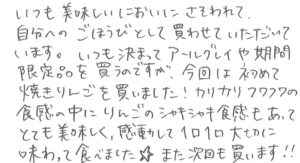 いつも美味しいにおいにさそわれて、
自分へのごほうびとして買わせていただいて
います。いつも決まってアールグレイや期間
限定品を買うのですが、今回は初めて
焼きりんごを買いました！カリカリフワフワの
食感の中にりんごのシャキシャキ食感もあって
とても美味しく、感動して1口1口大切に
味わって食べました☆また次回も買います！！